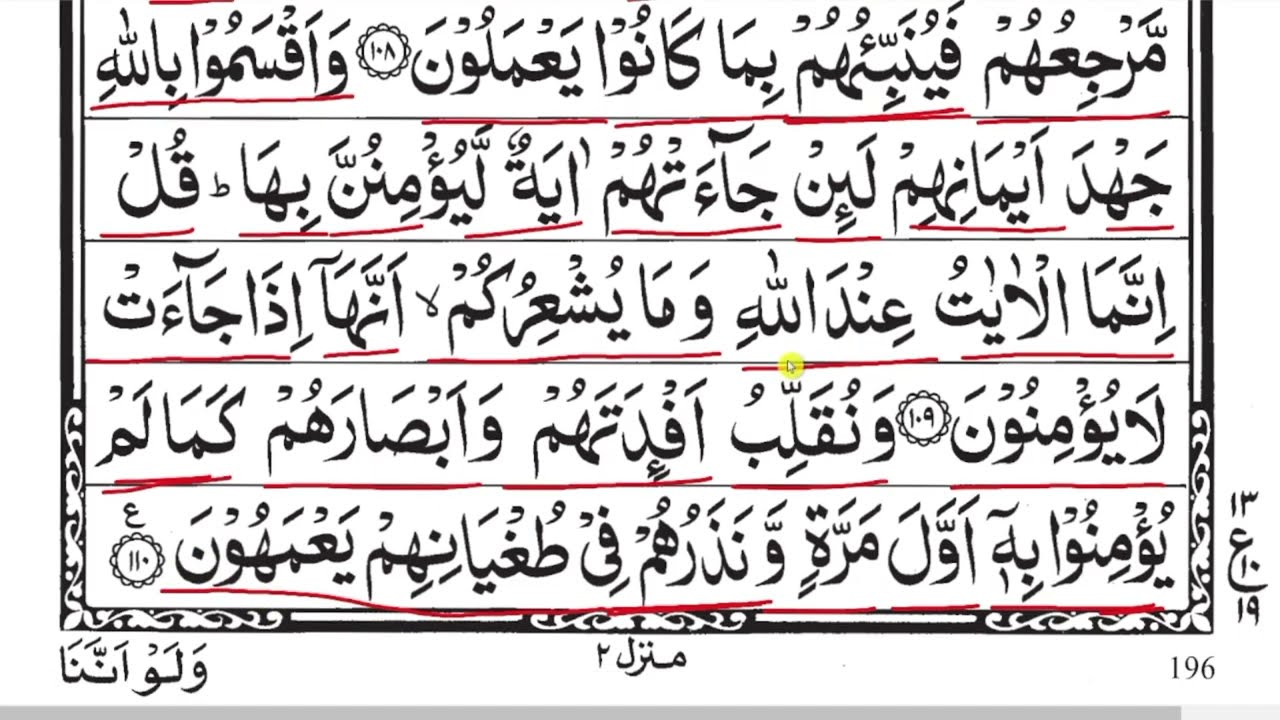 مَّرْجِعُهُمْ فَيُنَبِّئُهُمْ بِمَا كَانُوْا يَعْمَلُوْنَ ۝۱۰۸ وَاَقْسَمُوْا بِاللّٰهِ
جَهْدَ اَيْمَانِهِمْ لَئِنْ جَآءَتْهُمْ اٰيَةٌ لَّيُؤْمِنُنَّ بِهَا ؕ قُلْ
اِنَّمَا الْاٰيٰتُ عِنْدَ اللّٰهِ وَمَا يُشْعِرُكُمْ ۙ اَنَّهَاۤ اِذَا جَآءَتْ
لَا يُؤْمِنُوْنَ ۝۱۰۹ وَنُقَلِّبُ اَفْـِٕدَتَهُمْ وَاَبْصَارَهُمْ كَمَا لَمْ
يُؤْمِنُوْا بِهٖۤ اَوَّلَ مَرَّةٍ وَّنَذَرُهُمْ فِيْ طُغْيَانِهِمْ يَعْمَهُوْنَ ۝۱۱۰ ع
۱۳
ع
۱۰
۱۹
وَلَوْ اَنَّنَا
منزل ۲
196